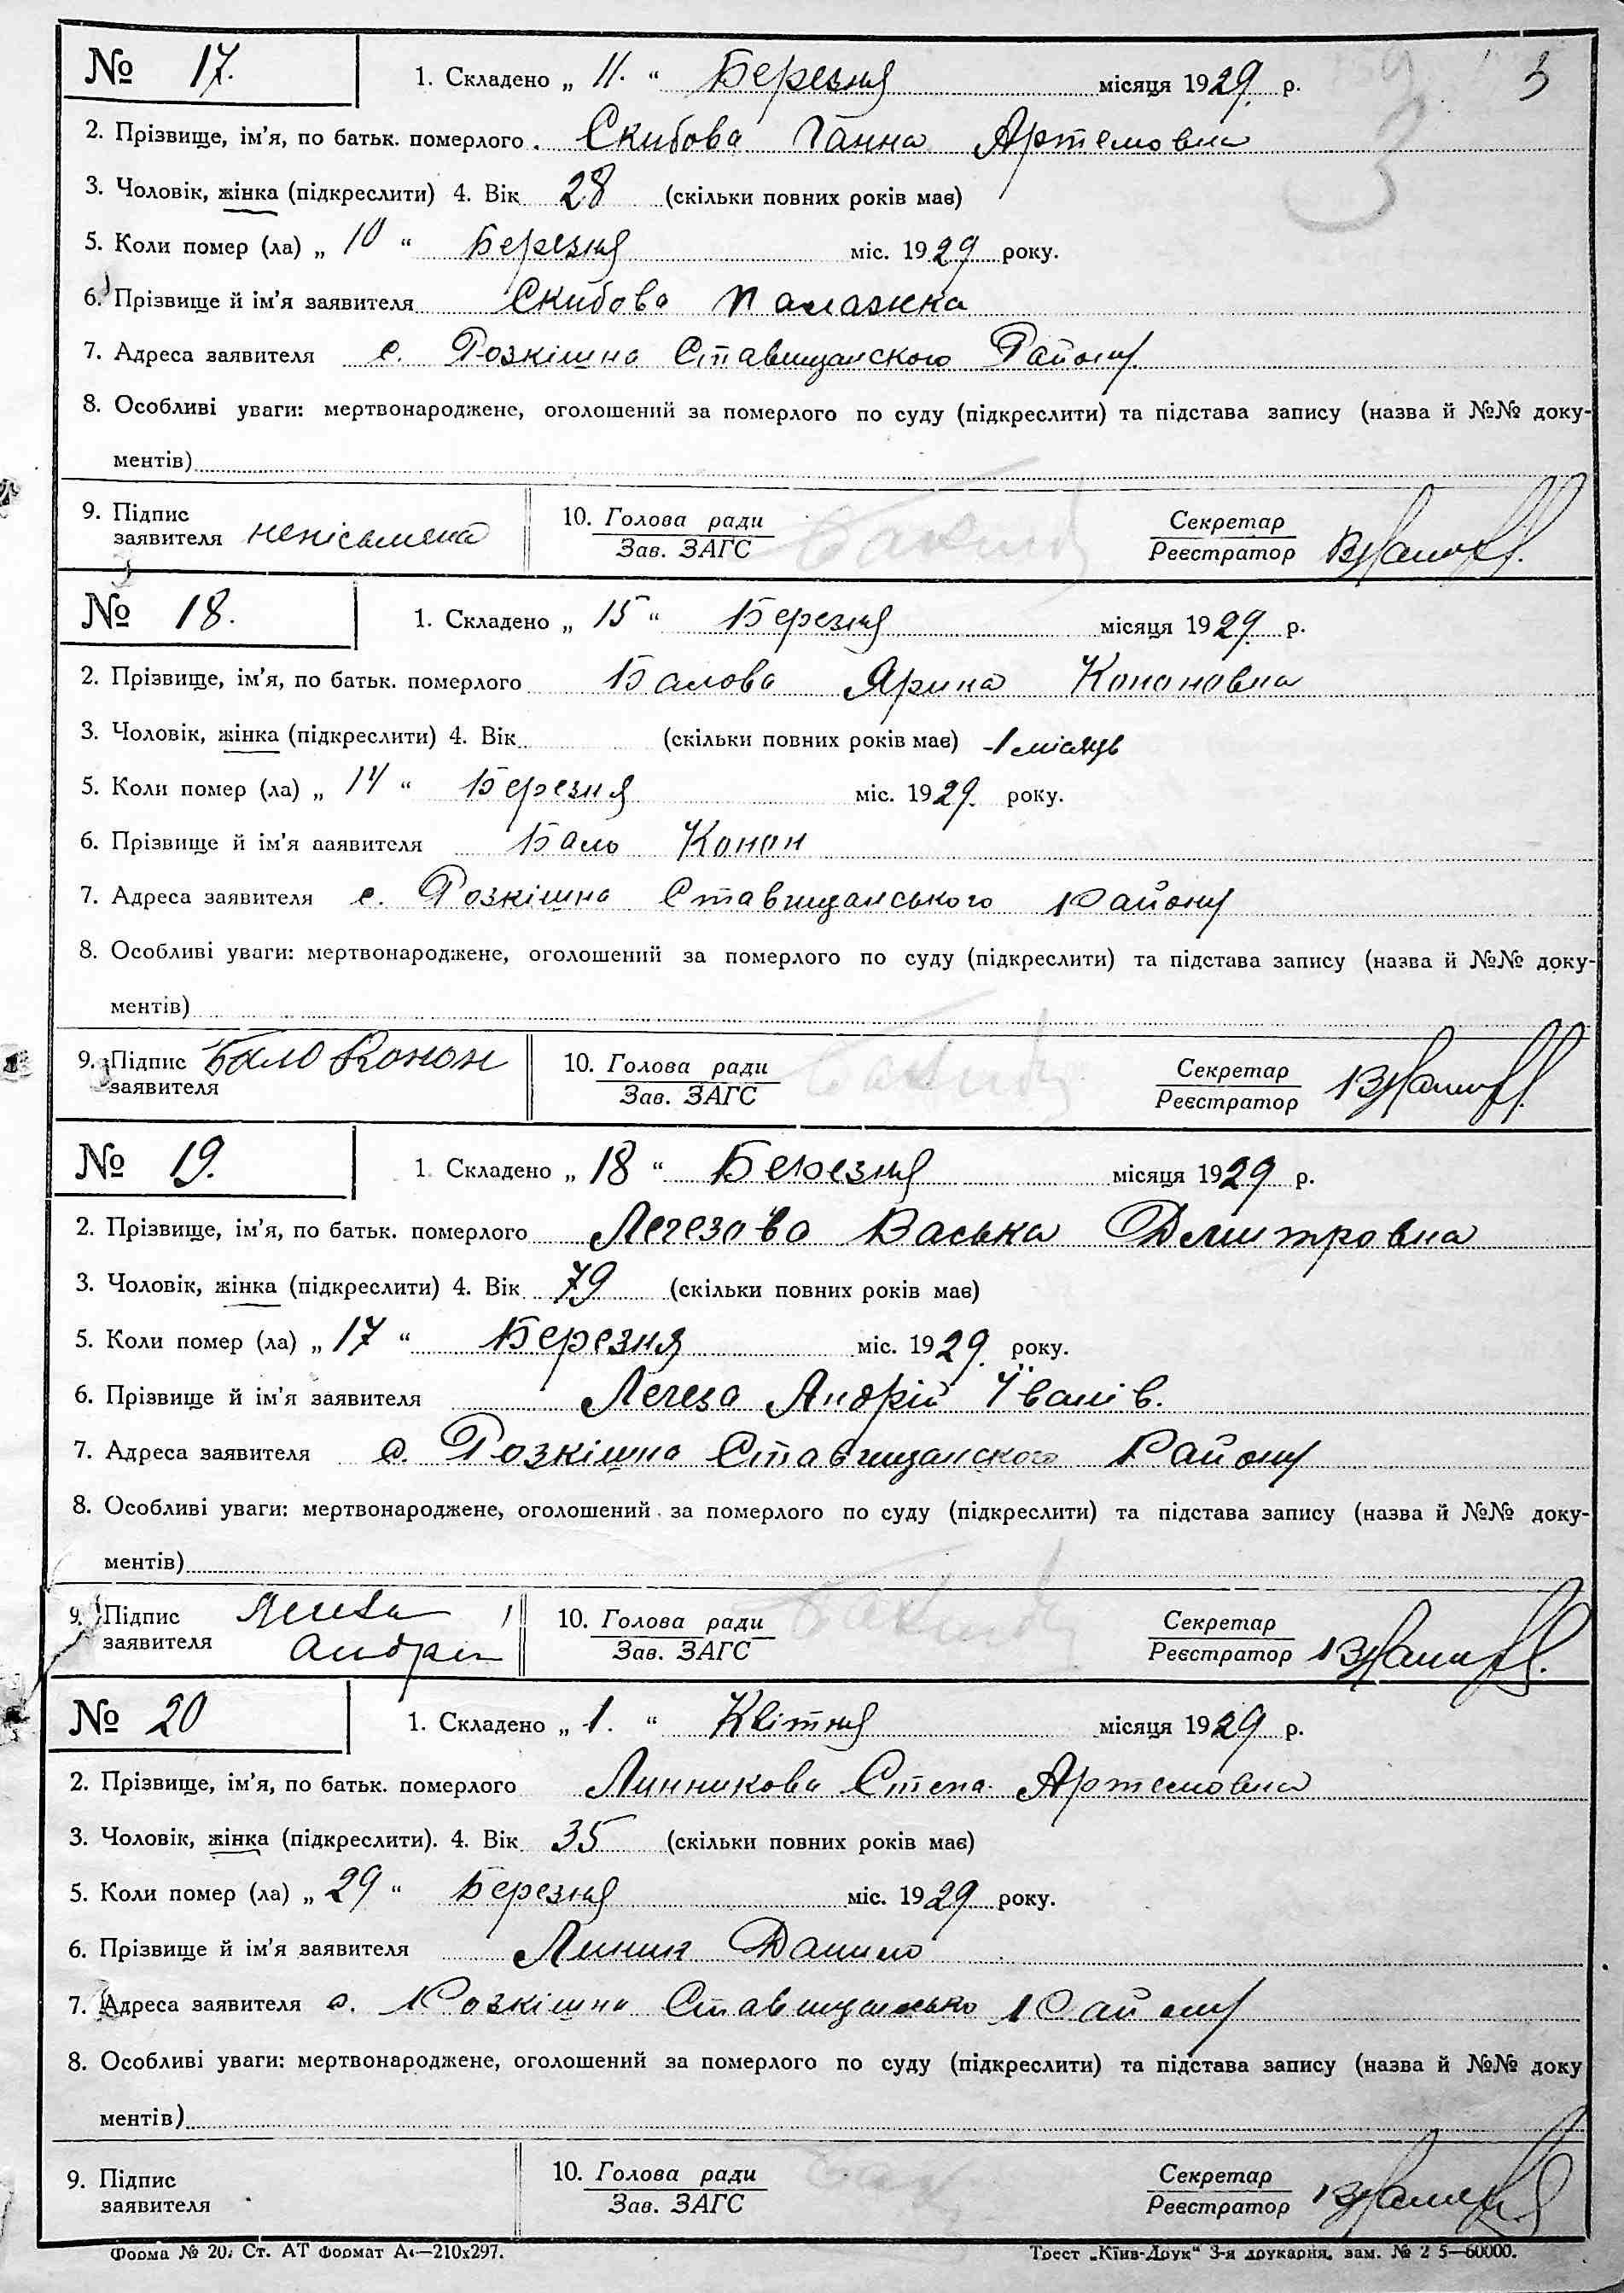 3
3
№ 17. 1. Складено „ 11. “ Березня місяця 1929. р.
2. Прізвище, ім’я, по батьк. померлого. Скибова Ганна Артемовна
3. Чоловік, жінка (підкреслити) 4. Вік 28 (скільки повних років має)
5. Коли помер (ла) „ 10 “ Березня міс. 1929 року.
6. Прізвище й ім’я заявителя Скибова Палажка
7. Адреса заявителя с. Розкішна Ставищанского Району.
8. Особливі уваги: мертвонароджене, оголошений за померлого по суду (підкреслити) та підстава запису (назва й №№ доку-
ментів)
9. Підпис заявителя неписьмена 10. Голова ради Секретар
Зав. ЗАГС Реєстратор
№ 18. 1. Складено „ 15 “ Березня місяця 1929. р.
2. Прізвище, ім’я, по батьк. померлого Балова Ярина Кононовна
3. Чоловік, жінка (підкреслити) 4. Вік (скільки повних років має) 1 місяць
5. Коли помер (ла) „ 14 “ Березня міс. 1929. року.
6. Прізвище й ім’я заявителя Бало Конон
7. Адреса заявителя с. Розкішна Ставищанського Району
8. Особливі уваги: мертвонароджене, оголошений за померлого по суду (підкреслити) та підстава запису (назва й №№ доку-
ментів)
9. Підпис заявителя Бало Конон 10. Голова ради Секретар
Зав. ЗАГС Реєстратор
№ 19. 1. Складено „ 18 “ Березня місяця 1929 р.
2. Прізвище, ім’я, по батьк. померлого Легезова Васька Дмитровна
3. Чоловік, жінка (підкреслити) 4. Вік 79 (скільки повних років має)
5. Коли помер (ла) „ 17 “ Березня міс. 1929. року.
6. Прізвище й ім’я заявителя Легеза Андрій Іванів.
7. Адреса заявителя с. Розкішна Ставищанского Району
8. Особливі уваги: мертвонароджене, оголошений за померлого по суду (підкреслити) та підстава запису (назва й №№ доку-
ментів)
9. Підпис заявителя Легеза Андрій 10. Голова ради Секретар
Зав. ЗАГС Реєстратор
№ 20 1. Складено „ 1. “ Квітня місяця 1929 р.
2. Прізвище, ім’я, по батьк. померлого Линникова Степа Артемовна
3. Чоловік, жінка (підкреслити). 4. Вік 35 (скільки повних років має)
5. Коли помер (ла) „ 29 “ Березня міс. 1929 року.
6. Прізвище й ім’я заявителя Линник Данило
7. Адреса заявителя с. Розкішна Ставищансько Району
8. Особливі уваги: мертвонароджене, оголошений за померлого по суду (підкреслити) та підстава запису (назва й №№ доку
ментів)
9. Підпис заявителя 10. Голова ради Секретар
Зав. ЗАГС Реєстратор
Форма № 20. Ст. АТ Формат А4—210х297. Трест „Київ-Друк“ 3-я друкарня, зам. № 2 5—60000.